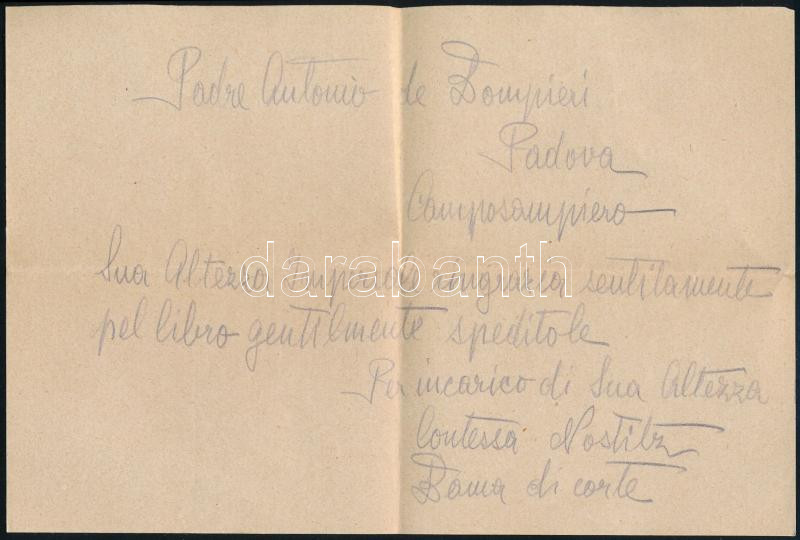 Padre Antonio de Pompieri
Padova
Camposampiero
Sua Altezza Imperiale ringrazia sentitamente
pel libro gentilmente speditole
Per incarico di Sua Altezza
Contessa Nostitz
Dama di corte
darabanth